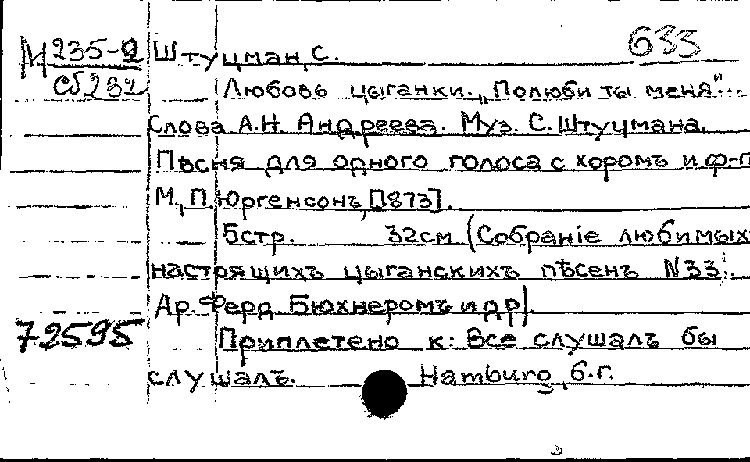 633
М 235-2 Штуцман, С.
сб 282 Любовь цыганки. „Полюби ты меня"...
Слова А.Н. Андреева. Муз. С. Штуцмана.
Пѣсня для одного голоса с хоромъ и ф-п
М., П. Юргенсонъ, [1873].
5 стр. 32 см. (Собраніе любимых
настрящихъ цыганскихъ пѣсенъ N33.
Ар. Ферд. Бюхнеромъ и др).
72595 Приплетено к: Все слушалъ бы
слушалъ. Hamburg, б.г.